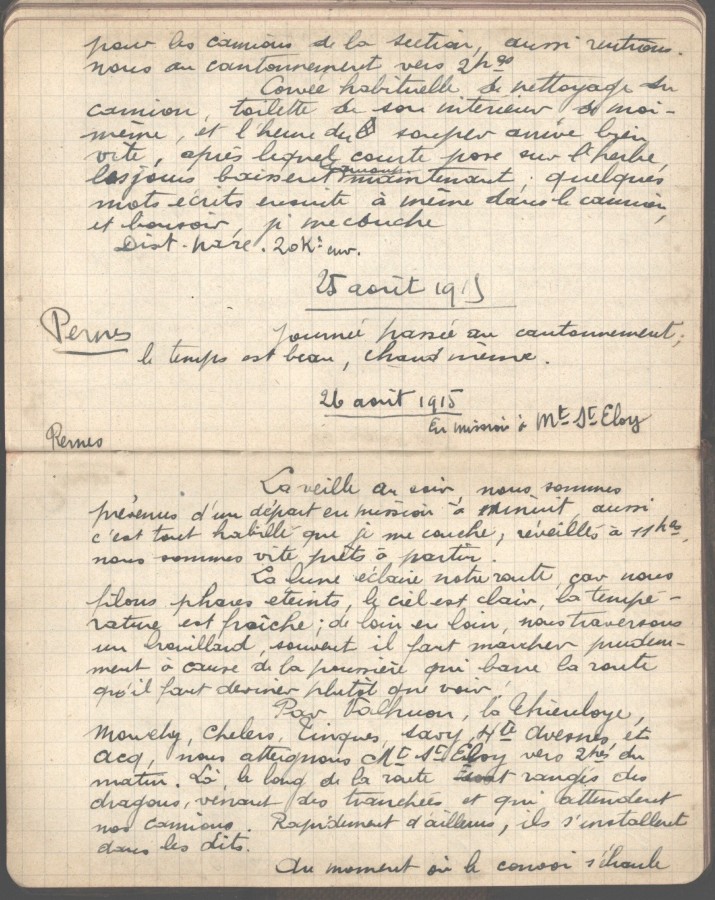 pour les camions de la section, aussi rentrons-
nous au cantonnement vers 2h30
Corvée habituelle de nettoyage du
camion, toilette de son intérieur & moi-
même, et l'heure du souper arrive bien
vite, après lequel courte pose sur l'herbe,
les jours baissent maintenant, quelques
mots écrits ensuite à même dans le camion,
et bonsoir, je me couche
Dist. parc. 20Ks env.
25 août 1915
Pernes
Journée passée au cantonnement;
le temps est beau, chaud même.
26 août 1915
En mission à Mt St Eloy
Pernes
La veille au soir, nous sommes
prévenus d'un départ en mission à minuit, aussi
c'est tout habillé que je me couche, réveillés à 11h
nous sommes vite prêts à partir.
La lune éclaire notre route, car nous
filons phares éteints, le ciel est clair, la tempé-
rature est fraîche; de loin en loin, nous traversons
un brouillard, souvent il faut marcher prudem-
ment à cause de la poussière qui barre la route
qu'il faut deviner plutôt que voir,
Par Valhuon, la Thieuloye,
Monchy, Chelers, Tinques, Savy, Hte Avesnes et
Acq, nous atteignons Mt St Eloy vers 2hes du
matin. Là, le long de la route sont rangés des
dragons, venant des tranchées et qui attendent
nos camions. Rapidement d'ailleurs, ils s'installent
dans les dits.
Au moment où le convoi s'ébranle